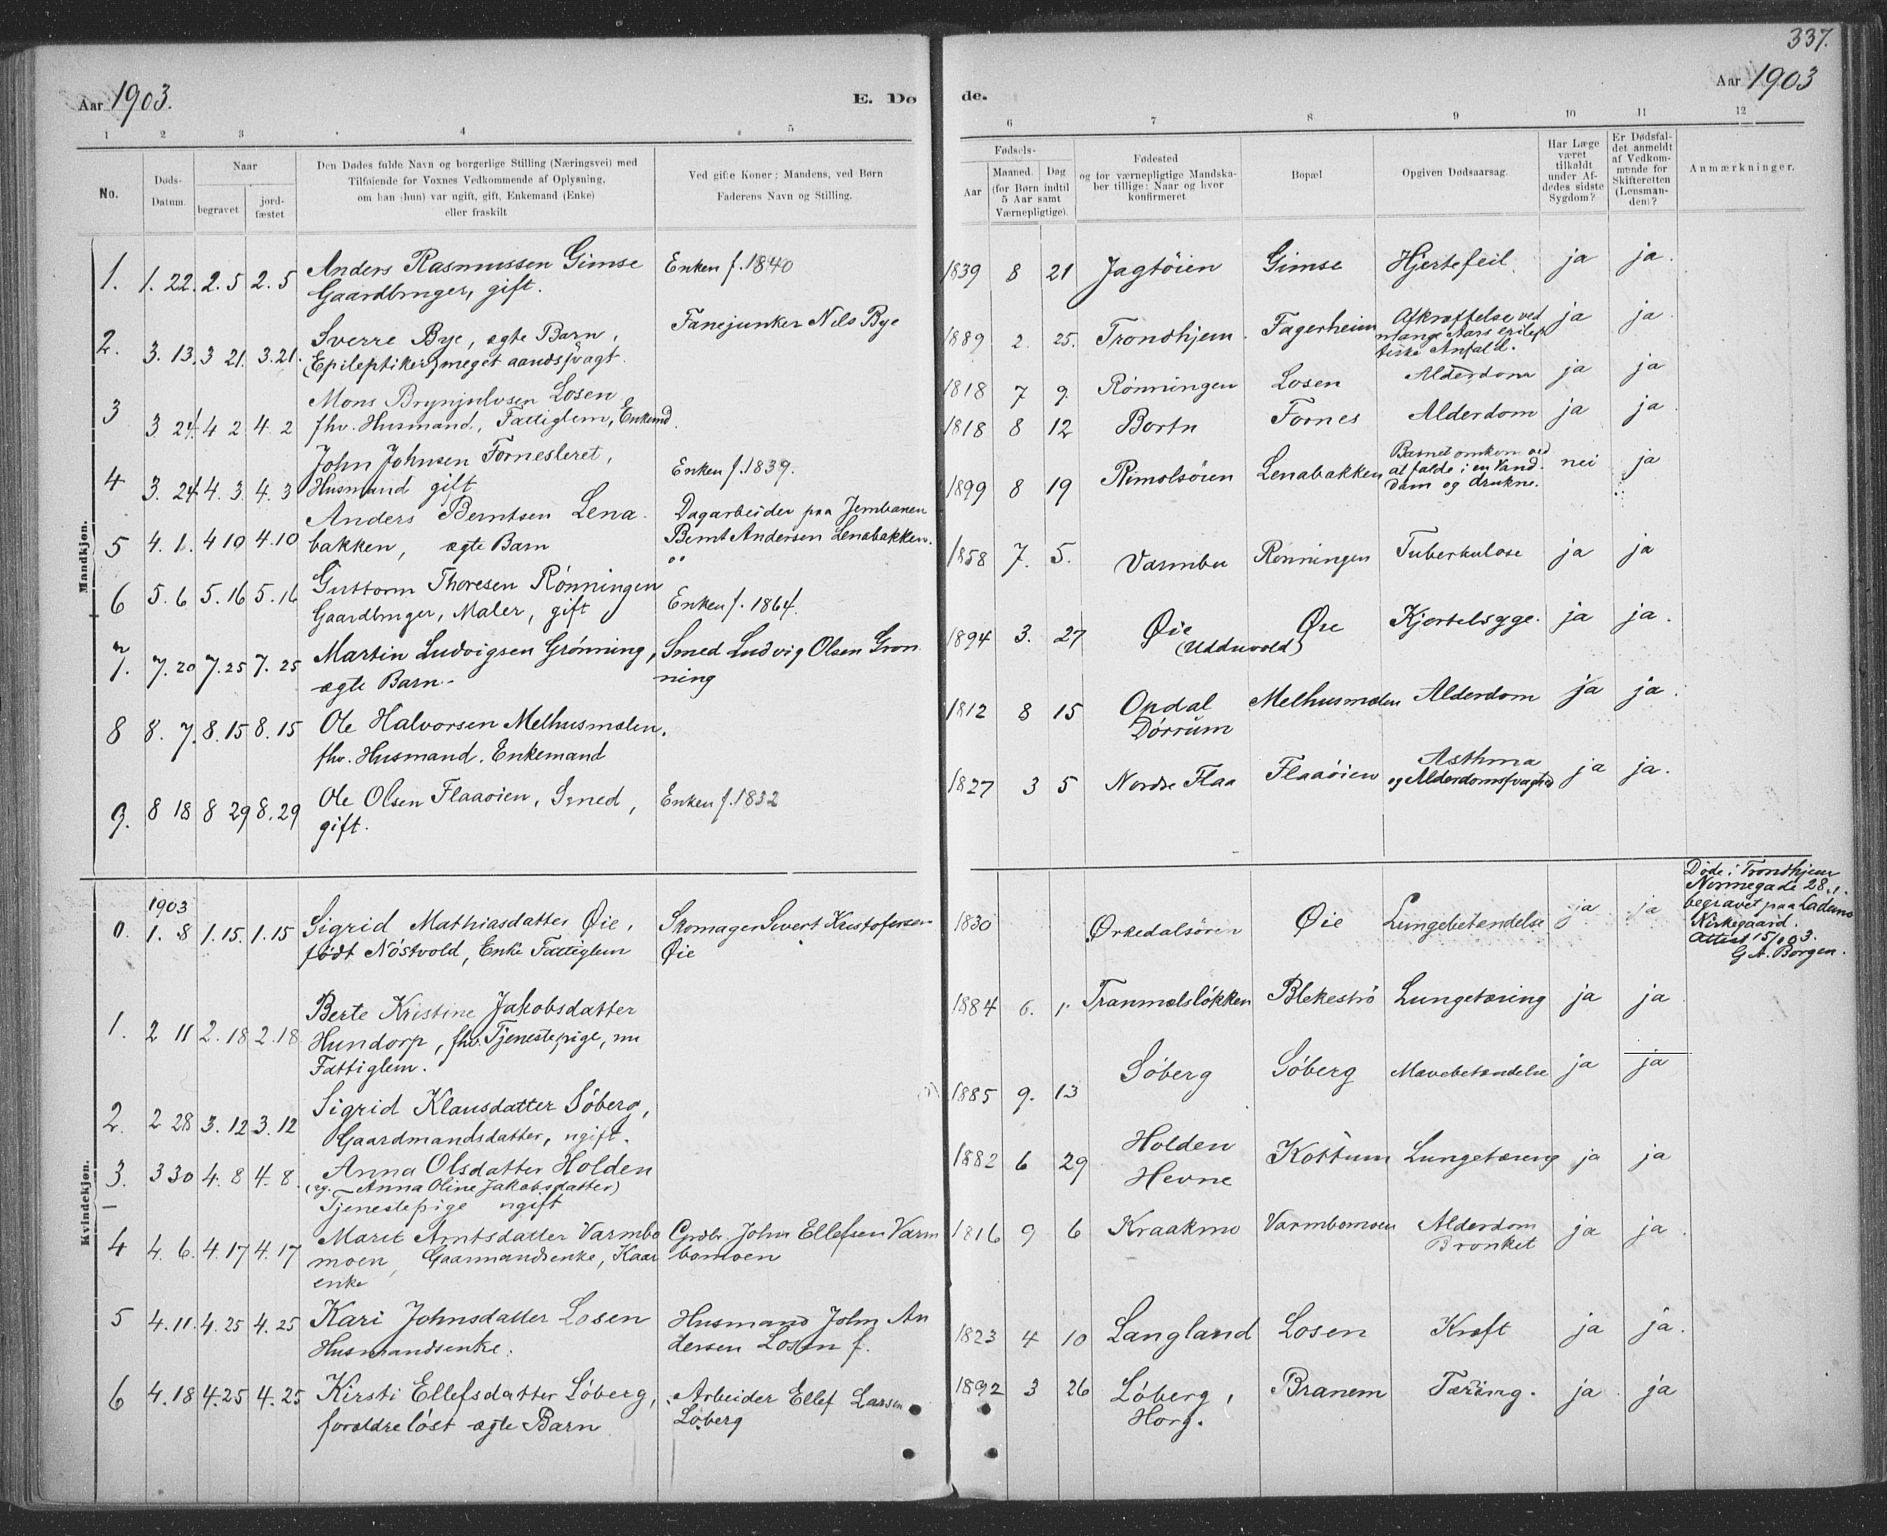 337.
Aar 1903.
E. Dø
de.
Aar 1903
1 2 3 4 5
6 7 8 9 10 11 12
No.
Døds-
Datum.
Naar
begravet
jord-
fæstet
Den Dødes fulde Navn og borgerlige Stilling (Næringsvei) med
Tilføiende for Voxnes Vedkommende af Oplysning,
om han (hun) var ugift, gift, Enkemand (Enke)
eller fraskilt
Ved gifte Koner: Mandens, ved Børn
Faderens Navn og Stilling.
Fødsels-
Aar
Maaned. Dag
(for Børn indtil
5 Aar samt
Værnepligtige).
Fødested
og for værnepligtige Mandska-
ber tillige: Naar og hvor
konfirmeret
Bopæl
Opgiven Dødsaarsag.
Har Læge
været
tilkaldt
under Af-
dødes sidste
Sygdom?
Er Dødsfal-
det anmeldt
af Vedkom-
mende for
Skifteretten
(Lensman-
den)?
Anmærkninger.
Mandkjøn.
1. 1. 22. 2. 5 2. 5 Anders Rasmussen Gimse Enken f. 1840
Gaardbruger, gift.
1839 8 21 Jagtöien Gimse Hjertefeil. ja ja.
2. 3. 13. 3 21. 3. 21. Sverre Bye, ægte Barn, Fanejunker Nils Bye
(Epileptiker) meget aandssvagt.
1889 2. 25. Trondhjem. Fagerheim Afkræftelse ved ja ja.
mange Aars epilep
tiske Anfald.
3 3 24. 4 2 4. 2 Mons Brynjulvsen Losen
fhv. Husmand, Fattiglem, Enkemd.
1818 7 9. Rönningen Losen Alderdom ja ja
4 3. 24. 4. 3. 4. 3 John Johnsen Fornesleret, Enken f. 1839.
Husmand gift
1818 8 12 Bortn Fornes Alderdom ja ja.
5 4. 1. 4 10 4. 10 Anders Berntsen Lena Dagarbeider paa Jernbanen
bakken, ægte Barn Bernt Andersen Lenabakken.
1899 8 19 Rimolsören Lenabakken Barnet omkom ved nei ja
at falde i en Vand-
dam og drukne.
6 5. 6. 5. 16 5. 16 Guttorm Thoresen Rönningen Enken f. 1864.
Gaardbruger, Maler, gift
1858 7. 5. Varmbu Rönningen Tuberkulose ja ja
7. 7. 20 7. 25 7. 25 Martin Ludvigsen Grönning, Smed Ludvig Olsen Grön
ægte Barn. ning
1894 3. 27 Øie Øie Kjertelsyge. ja ja.
(Udduvold)
8 8. 7. 8. 15 8. 15 Ole Halvorsen Melhusmælen.
fhv. Husmand. Enkemand
1812 8 15 Opdal Melhusmælen Alderdom ja ja.
Dörrum
9. 8 18 8 29 8. 29 Ole Olsen Flaaöien, Smed, Enken f. 1832
gift.
1827 3 5 Nordre Flaa Flaaöien Asthma ja ja.
og Alderdomssvaghed
Kvindekjøn.
1903
0. 1. 8 1. 15. 1. 15 Sigrid Mathiasdatter Øie, Skomager Sivert Kristofersen
født Nöstvold, Enke Fattiglem Øie
1830 Ørkedalsören Øie Lungebetændelse ja ja
Döde i Trondhjem
Normegade 28.
begravet paa Lademo
Kirkegaard.
Attest 15/1 03.
G. A. Borgen.
1. 2 11 2. 18 2. 18 Berte Kristine Jakobsdatter
Hundorp, fhv. Tjenestepige, nu
Fattiglem.
1884 6. 1. Tranmælslökken Blekeströ Lungetæring ja ja
2. 2 28 3. 12 3. 12 Sigrid Klausdatter Söberg,
Gaardmandsdatter, ugift.
1885 9. 13 Söberg Söberg Mavebetændelse ja ja
3. 3 30 4. 8 4. 8. Anna Olsdatter Holden
Anna Oline Jakobsdatter)
Tjenestepige ugift
1882 6 29 Holden Kottum Lungetæring ja ja
Hevne
4 4. 6. 4. 17 4. 17 Marit Arntsdatter Varmbo Grdbr. John Ellefsen Varm
moen, Gaarmandsenke, Kaar bomoen
enke
1816 9 6 Kraakmo Varmbomoen Alderdom ja ja.
Bronket
5 4. 11. 4. 25 4. 25 Kari Johnsdatter Losen Husmand John An
Husmandsenke. dersen Losen f.
1823 4 10 Langland Losen Kræft ja ja.
6 4. 18 4. 25 4. 25 Kirsti Ellefsdatter Söberg, Arbeider Ellef Larsen
forældrelöst ægte Barn Söberg
1892 3 26 Söberg, Branem Tæring. ja ja
Horg.